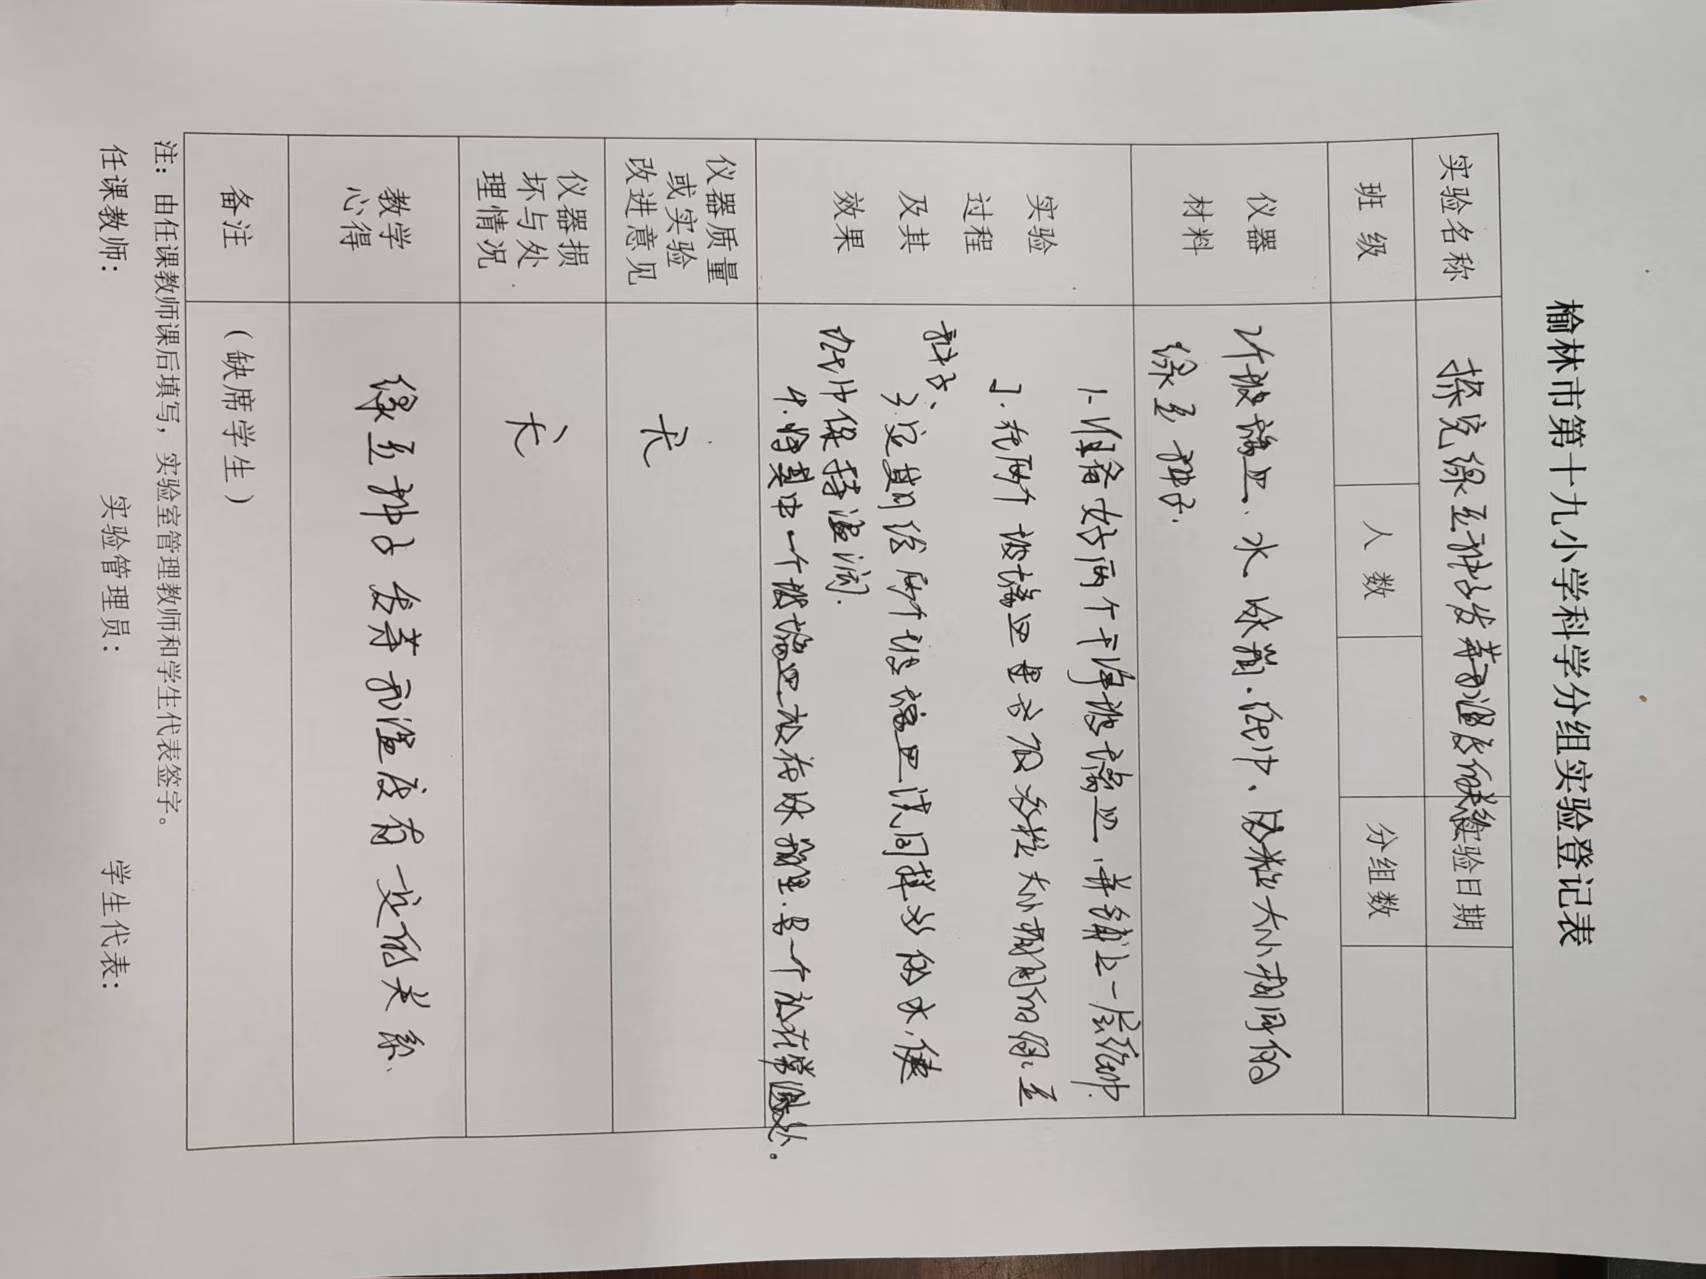 榆林市第十九小学科学分组实验登记表
实验名称 探究绿豆种子发芽和温度的关系 实验日期
班级 人数 分组数
仪器材料 2个玻璃皿、水、冰箱、纸巾、因粒大小相同的
绿豆种子.
实验过程及其效果
1.准备好两个干净玻璃皿,并铺上一层纸巾.
2.在两个玻璃皿里各放数粒大小相同的绿豆
种子、
3.定期给两个玻璃皿浇同样多的水,使
纸巾保持湿润.
4.将其中一个玻璃皿放在冰箱里.另一个放在常温处。
仪器质量或实验改进意见 无
仪器损坏与处理情况 无
教学心得 绿豆种子发芽和温度有一定的关系.
备注 (缺席学生)
注:由任课教师课后填写,实验室管理教师和学生代表签字。
任课教师: 实验管理员: 学生代表: